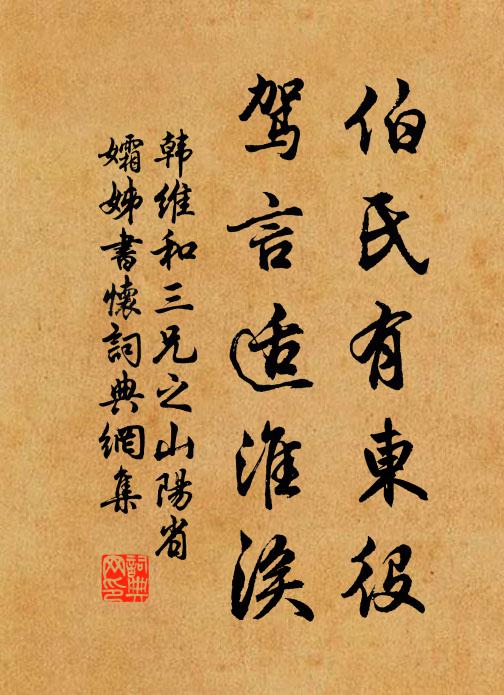 伯氏有東役
驾言适淮涘
韩維和三兄之山陽省
孀姊書懷詞典網集
詞典网印